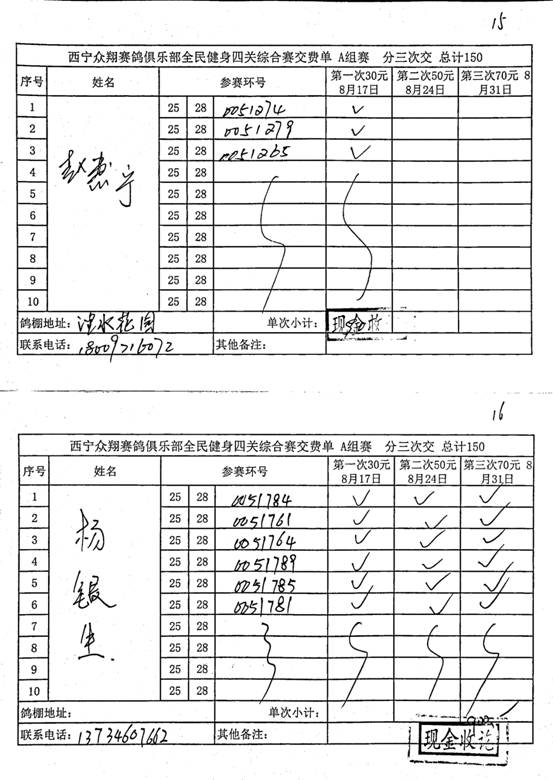 15
西宁众翔赛鸽俱乐部全民健身四关综合赛交费单 A组赛 分三次交 总计150
序号 姓名 参赛环号 第一次30元 8月17日 第二次50元 8月24日 第三次70元 8月31日
赵惠宁
1 25 28 0051274 ✓
2 25 28 0051279 ✓
3 25 28 0051265 ✓
4 25 28
5 25 28
6 25 28
7 25 28
8 25 28
9 25 28
10 25 28
鸽棚地址: 花园 单次小计: 现金收
联系电话: 18009716072 其他备注:
16
西宁众翔赛鸽俱乐部全民健身四关综合赛交费单 A组赛 分三次交 总计150
序号 姓名 参赛环号 第一次30元 8月17日 第二次50元 8月24日 第三次70元 8月31日
杨银生
1 25 28 0051784 ✓ ✓ ✓
2 25 28 0051761 ✓ ✓ ✓
3 25 28 0051764 ✓ ✓ ✓
4 25 28 0051789 ✓ ✓ ✓
5 25 28 0051785 ✓ ✓ ✓
6 25 28 0051781 ✓ ✓ ✓
7 25 28
8 25 28
9 25 28
10 25 28
鸽棚地址: 单次小计:
联系电话: 13734607662 其他备注: 现金收讫